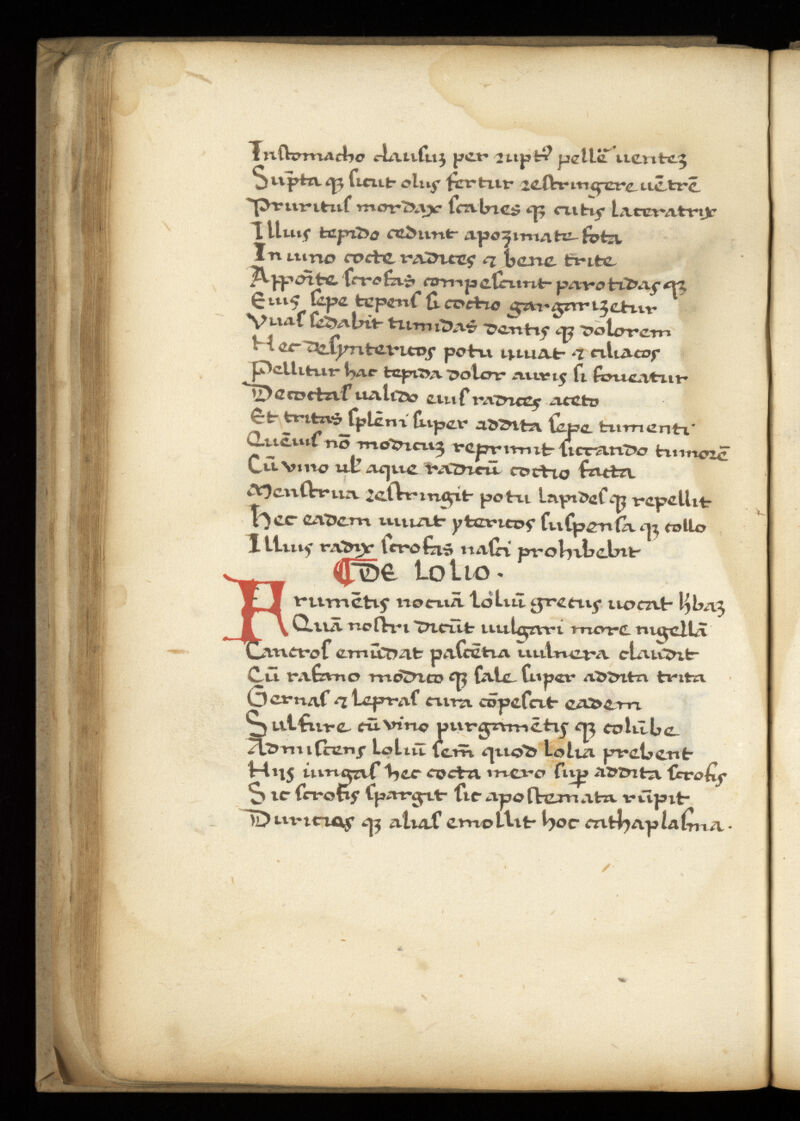 Instomacho clausuꝫ per rupt᷒ pellē uenteꝫ
Sūpta qꝫ sicut olus fertur restringere uētrē
Pruritus mordax scabies qꝫ cutis laceratrix
Illius tepido cedunt apozimate fota
In uino cocte radices ⁊ bene t̄rite
Appoīte scrofas compescunt parotidas qꝫ
Eius sepe tepens si coctio gargarizetur
Vuas sedabit tumidas dentis qꝫ dolorem
Hec desyntericos potu iuuat ⁊ ciliacos
Pellitur hac tepida dolor auris si foueatur
Decoctas ualido eius radices aceto
Et tritas splēni super addita sepe tumenti
Quēuis nō modicuꝫ reprimit siccando tumorē
Cū vino ul̄ aque radicū coctio facta
Menstrua restringit potu lapides qꝫ repellit
Hec eadem iuuat ytericos suspensa qꝫ collo
Illius radix scrofas nasci prohibebit
¶ De Lolio .
Frumētis nocuā loliū grecus uocat h̄baꝫ
Quā nostri dicūt uulgari more nigellā
Cancros emūdat pascētia uulnera claudit
Cū rafano modico qꝫ sale super addita trita
Gernas ⁊ lepras cura cōpescit eadem
Sulfure cū vino purgamētis qꝫ colūbe
Admiscens loliū sem̄ quod lolia prebent
Hijs iungas hec cocta mero suꝑ addita scrofis
Sic scrofis spargit sic apostemata rūpit
Duricias qꝫ alias emollit hoc cathaplasma .